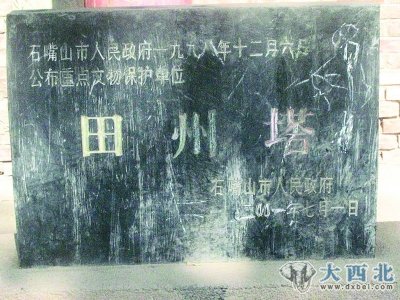 石嘴山市人民政府一九九八年十二月六日
公布重点文物保护单位
田州塔
石嘴山市人民政府
二〇〇一年七月一日
大西北
www.dxbei.com